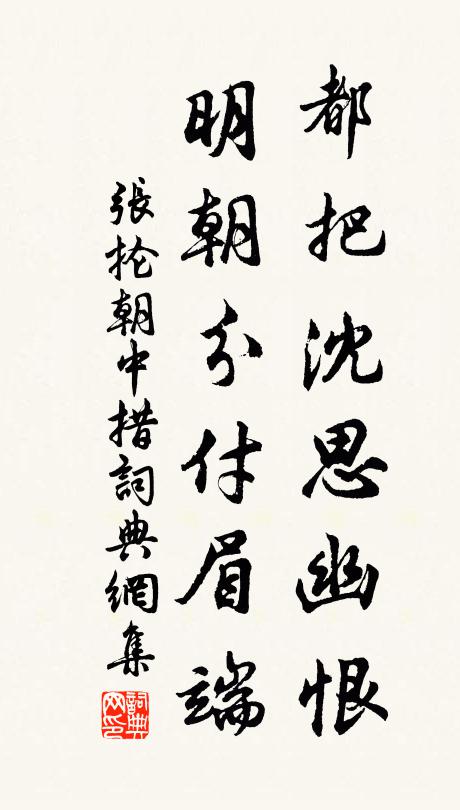 都把沈思幽恨
明朝分付眉端
張抡朝中措詞典網集
詞典網印